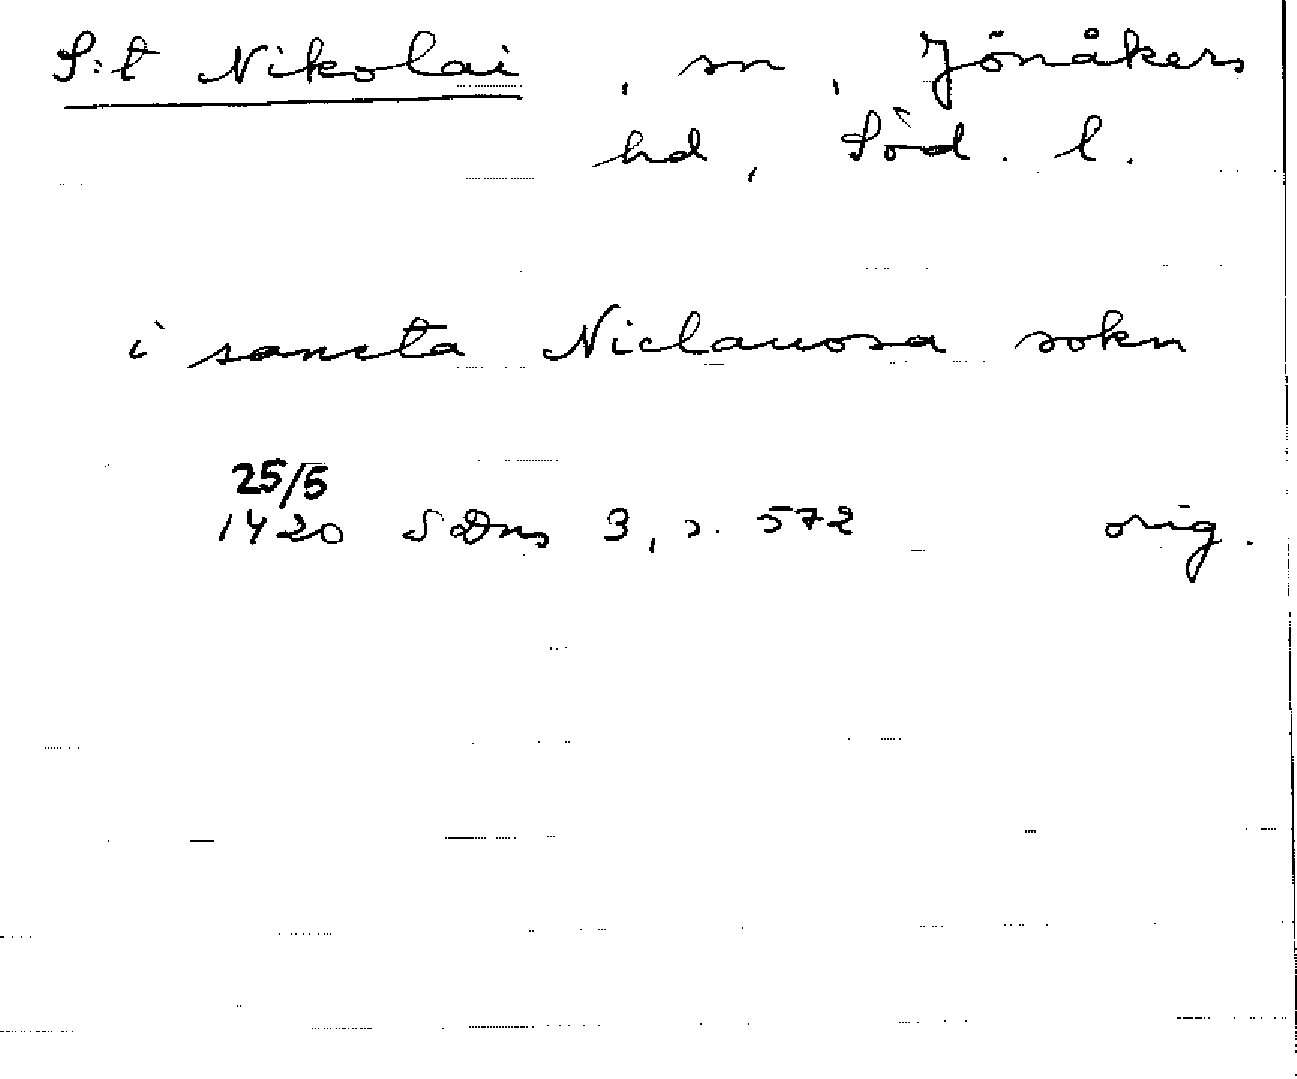 S:t Nikolai, sn, Jönåkers
hd, Söd. l.
i sancta Niclauosa sokn
25/5
1420 SDns 3, s. 572 orig.